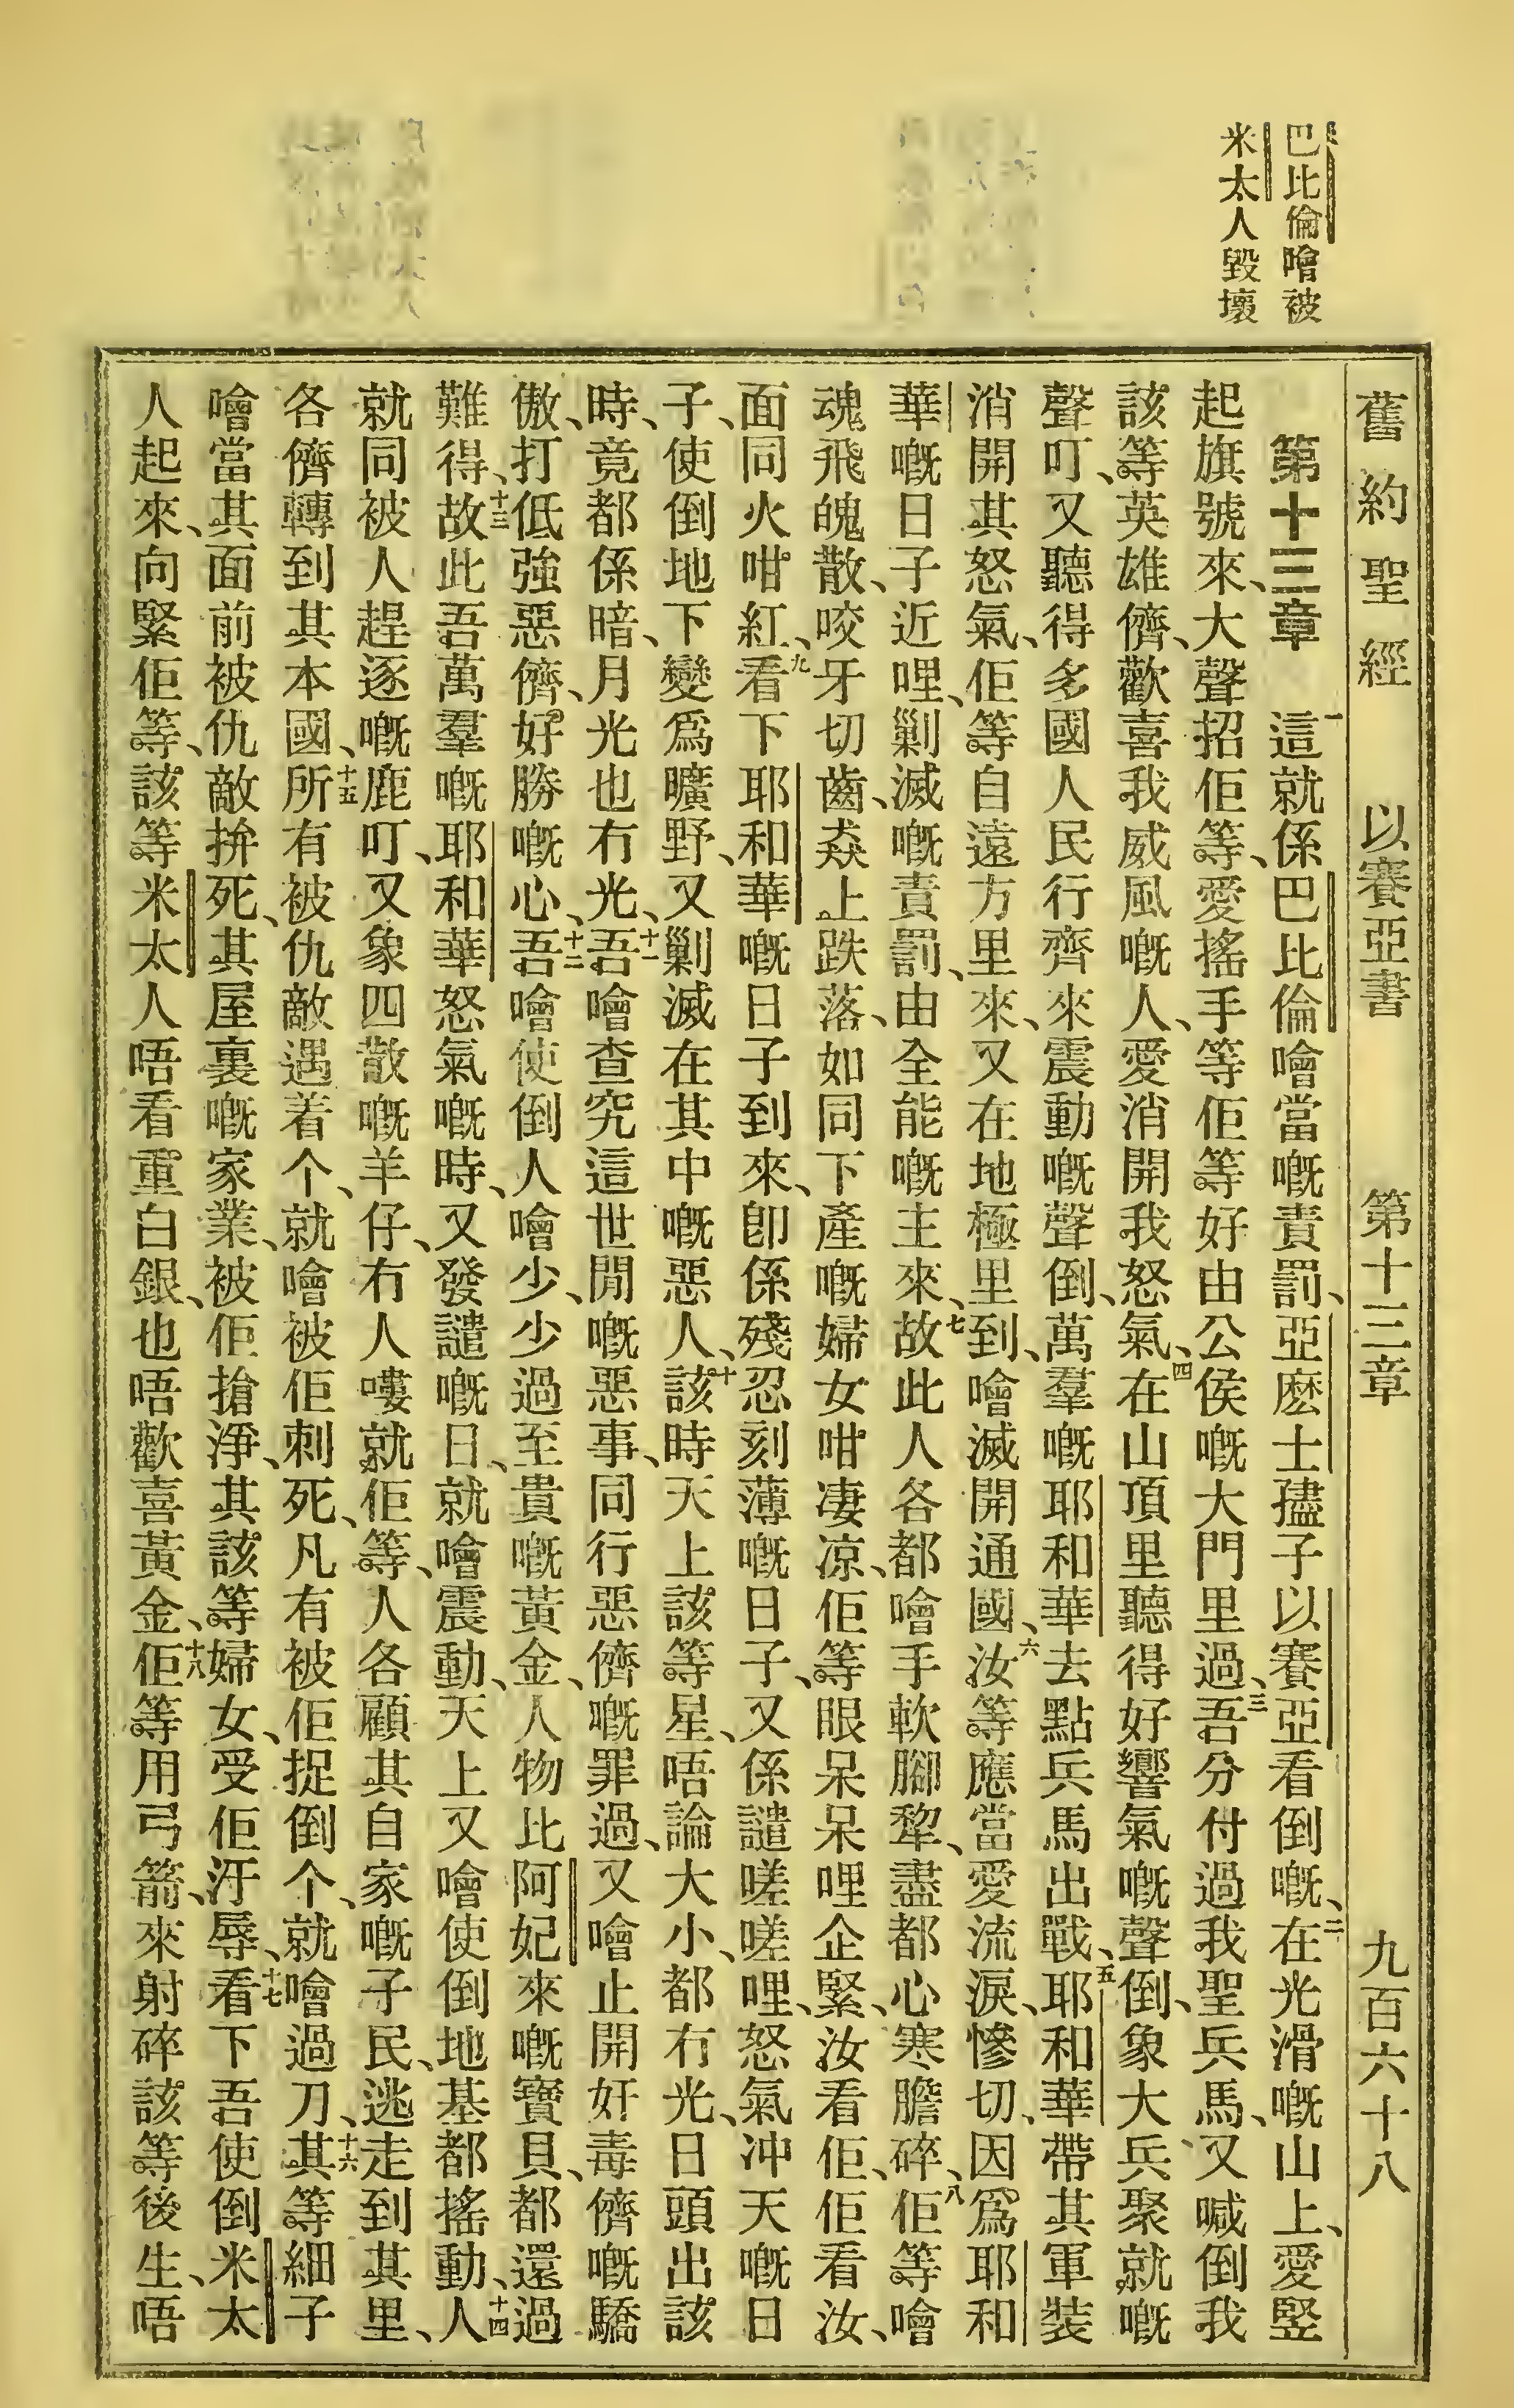 巴比倫噲被
米太人毀壞
舊約聖經 以賽亞書 第十三章 九百六十八
第十三章 一這就係巴比倫噲當嘅責罰、亞麽士孻子以賽亞看倒嘅、二在光滑嘅山上、愛竪
起旗號來、大聲招佢等、愛搖手等佢等好由公侯嘅大門里過、三吾分付過我聖兵馬、又喊倒我
該等英雄儕、歡喜我威風嘅人、愛消開我怒氣、四在山頂里聽得好響氣嘅聲倒、象大兵聚就嘅
聲叮、又聽得多國人民行齊來震動嘅聲倒、萬羣嘅耶和華去點兵馬出戰、五耶和華帶其軍裝
消開其怒氣、佢等自遠方里來、又在地極里到、噲滅開通國、六汝等應當愛流淚、慘切、因爲耶和
華嘅日子近哩、剿滅嘅責罰、由全能嘅主來、七故此人各都噲手軟腳犂、盡都心寒膽碎、八佢等噲
魂飛魄散、咬牙切齒、猋上跌落、如同下產嘅婦女咁凄凉、佢等眼呆呆哩企緊、汝看佢、佢看汝、
面同火咁紅、九看下耶和華嘅日子到來、卽係殘忍刻薄嘅日子、又係譴嗟嗟哩、怒氣冲天嘅日
子、使倒地下變爲曠野、又剿滅在其中嘅惡人、十該時天上該等星、唔論大小、都冇光、日頭出該
時、竟都係暗、月光也冇光、十一吾噲查究這世間嘅惡事、同行惡儕嘅罪過、又噲止開奸毒儕嘅驕
傲、打低強惡儕、好勝嘅心、十二吾噲使倒人噲少、少過至貴嘅黃金、人物比阿妃來嘅寶貝、都還過
難得、十三故此吾萬羣嘅耶和華怒氣嘅時、又發譴嘅日、就噲震動、天上又噲使倒地基都搖動、十四人
就同被人趕逐嘅鹿叮、又象四散嘅羊仔、冇人嘍就佢等、人各顧其自家嘅子民、逃走到其里、
各儕轉到其本國、十五所有被仇敵遇着个、就噲被佢刺死、凡有被佢捉倒个、就噲過刀、十六其等細子
噲當其面前被仇敵拚死、其屋裏嘅家業、被佢搶淨、其該等婦女、受佢汙辱、十七看下吾使倒米太
人起來、向緊佢等、該等米太人唔看重白銀、也唔歡喜黃金、十八佢等用弓箭、來射碎該等後生、唔